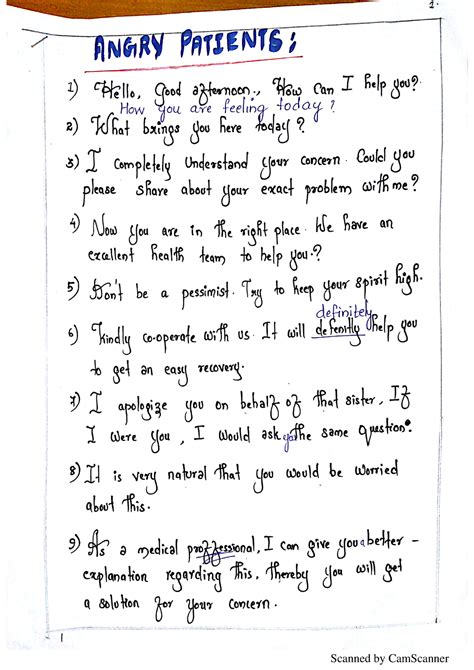 1.
ANGRY PATIENTS:
1) Hello, Good afternoon., How Can I help you?
How you are feeling today?
2) What brings you here today?
3) I completely understand your concern. Could you
please share about your exact problem with me?
4) Now you are in the right place. We have an
excellent health team to help you.?
5) Don't be a pessimist. Try to keep your spirit high.
definitely
6) Kindly co-operate with us. It will defenitly help you
to get an easy recovery.
7) I apologize you on behalf of that sister, If
I were you, I would ask you the same question.
8) It is very natural that you would be worried
about this.
9) As a medical proffessional, I can give you a better -
explanation regarding this, thereby you will get
a solution for your concern.
Scanned by CamScanner